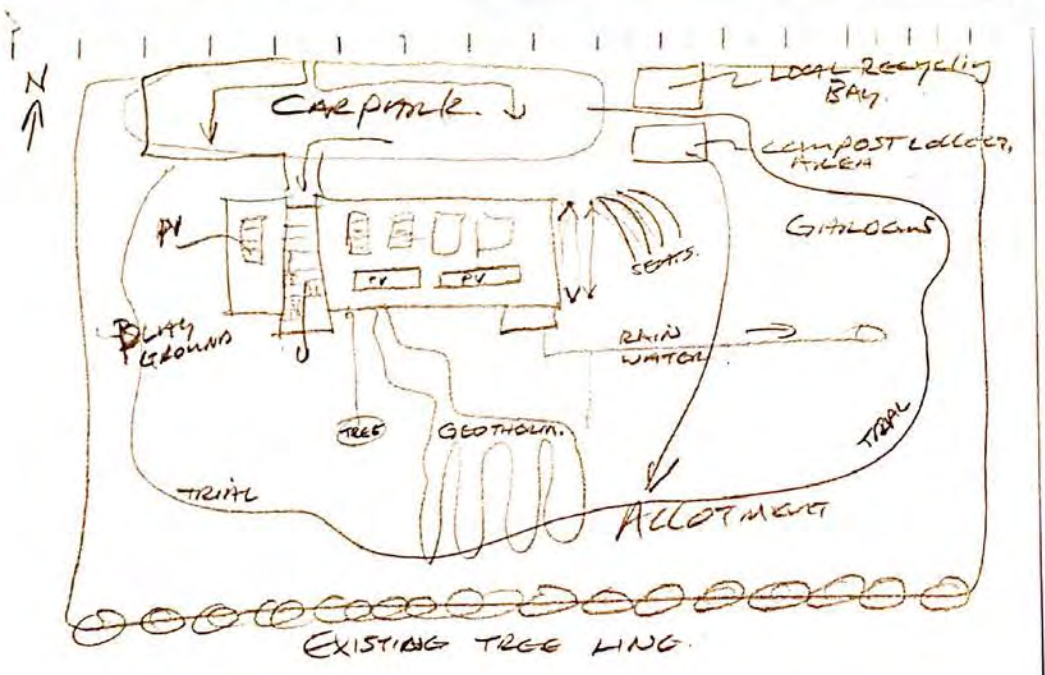 N
CAR PARK.
LOCAL RECYCLING
BAY.
COMPOST COLLECT.
AREA
PV
GARDENS
SEATS.
PV
PV
PLAY
GROUND
RAIN
WATER
TREE
GEOTHERM.
TRIAL
TRIAL
ALLOTMENT
EXISTING TREE LINE.